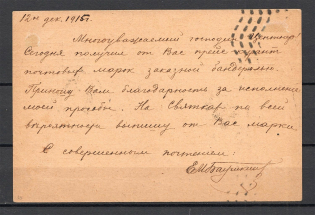 12го дек. 1915г.
Многоуважаемый господин
Сегодня получил от Вас прейс-курант
почтовых марок заказной бандеролью.
Приношу Вам благодарность за исполнение
моей просьбы. На Святках по всей
вероятности выпишу от Вас марки.
С совершенным почтением: